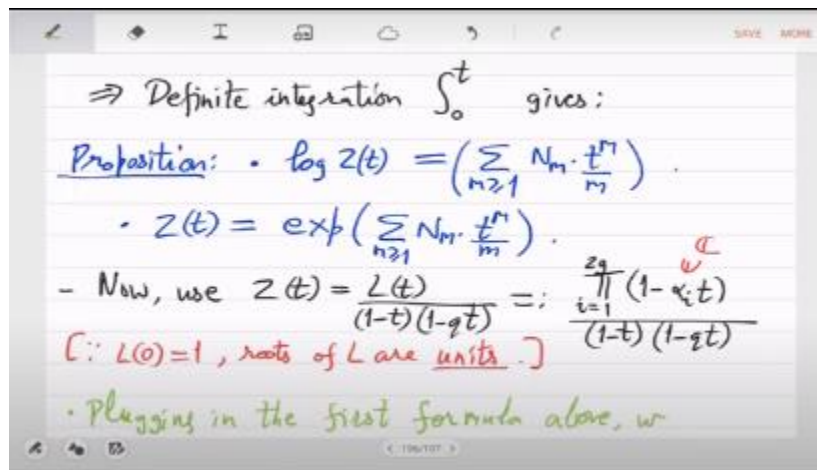 SAVE MORE
⇒ Definite integration ∫₀ᵗ gives:
Proposition: • log Z(t) = (∑_{m≥1} N_m · t^m/m) .
• Z(t) = exp(∑_{m≥1} N_m · t^m/m) .
- Now, use Z(t) = L(t)/((1-t)(1-qt)) =: ∏_{i=1}^{2g} (1-α_i t)/((1-t)(1-qt))
ℂ
[∵ L(0)=1, roots of L are units.]
• Plugging in the first formula above, w